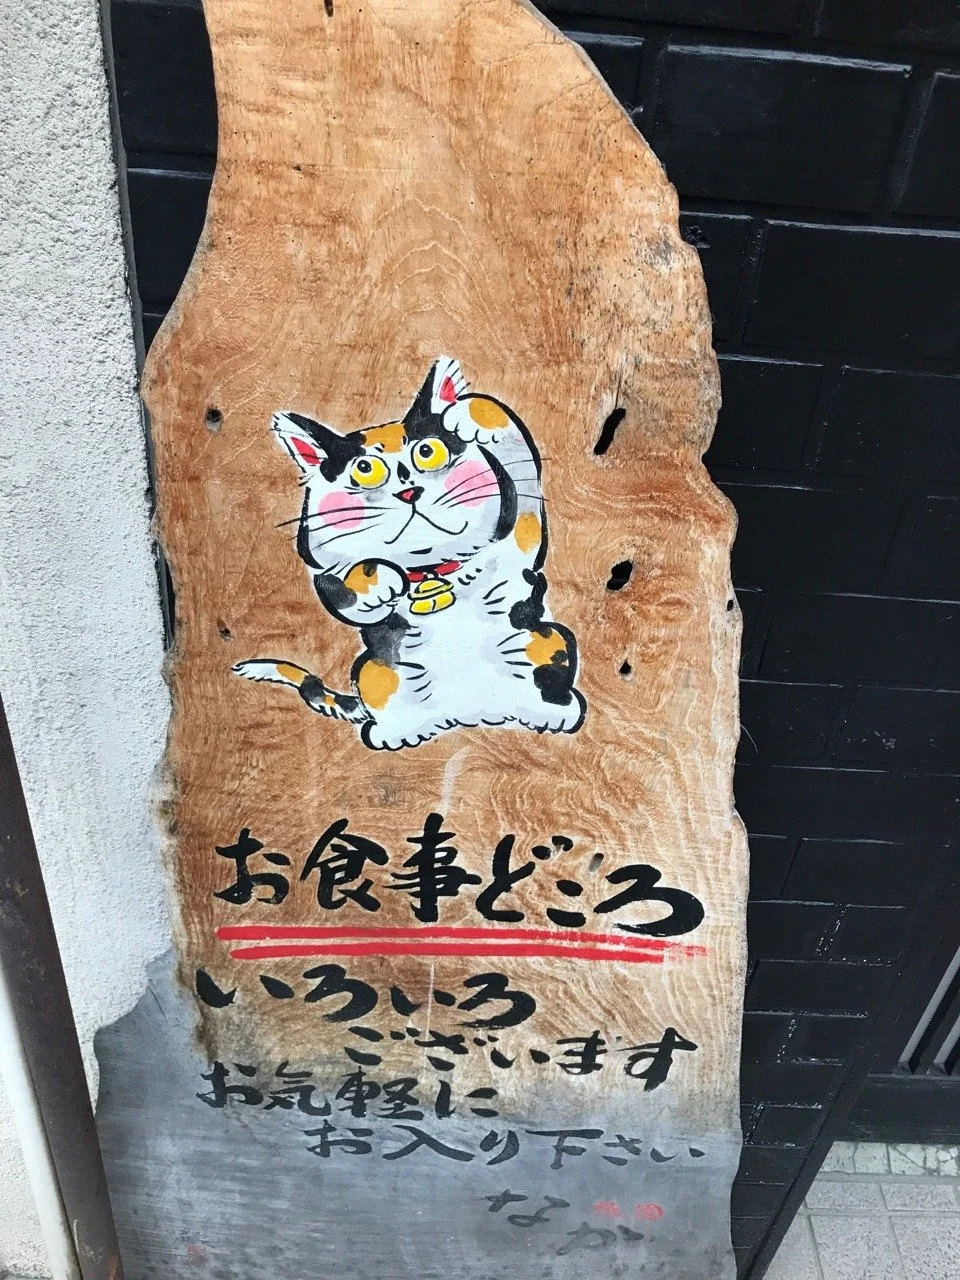 お食事どころ
いろいろ
ございます
お気軽に
お入り下さい
なか